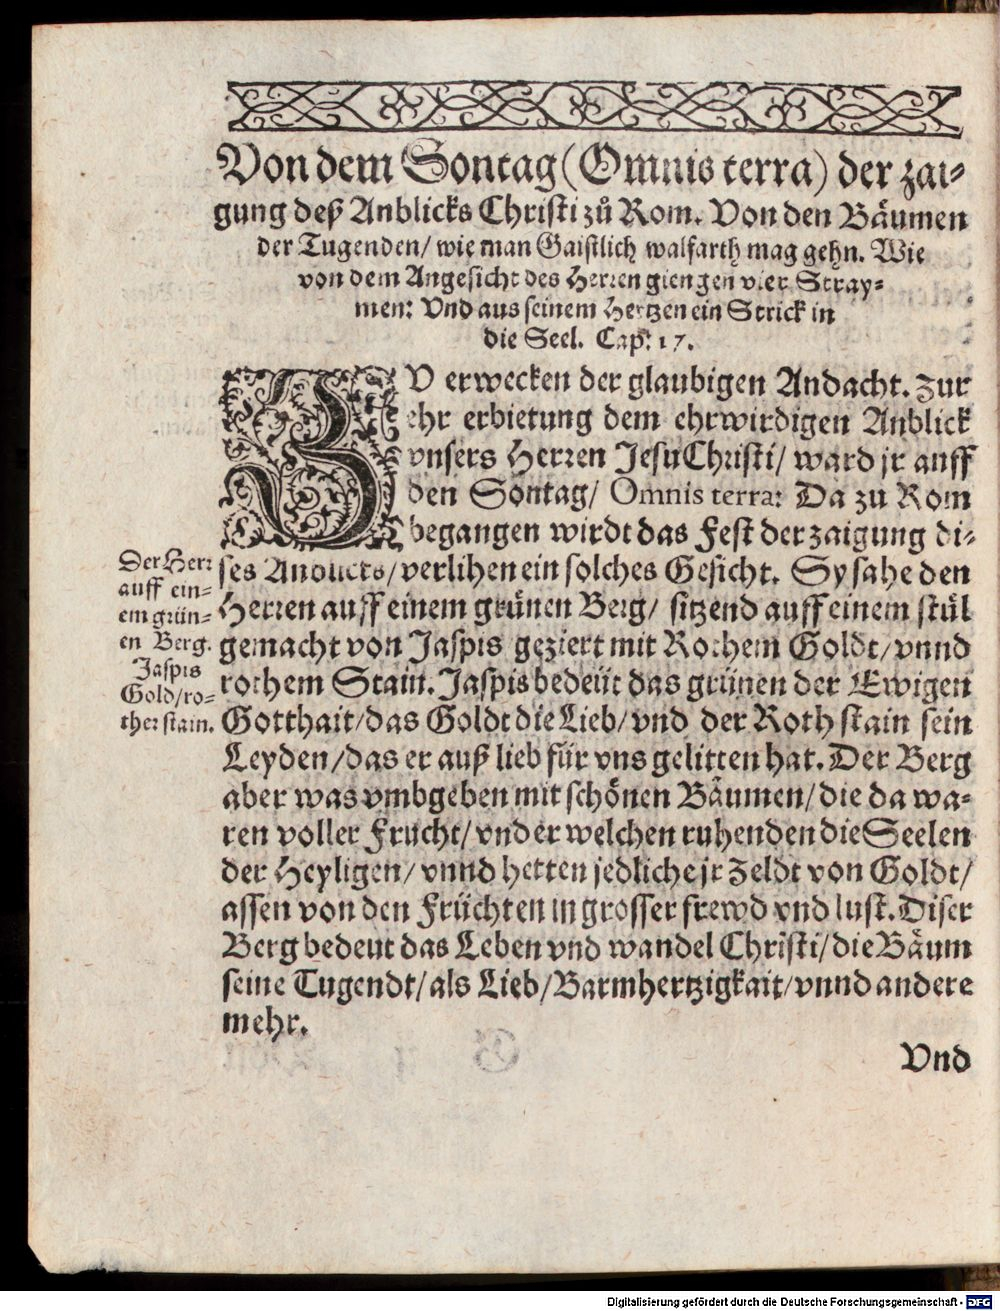 Von dem Sontag (Omnis terra) der zai-
gung deß Anblicks Christi zů Rom. Von den Bäumen
der Tugenden/ wie man Gaistlich walfarth mag gehn. Wie
von dem Angesicht des Herren giengen vier Stray-
men: Vnd aus seinem Hertzen ein Strick in
die Seel. Cap: 17.
ZV erwecken der glaubigen Andacht. Zur
ehr erbietung dem ehrwirdigen Anblick
vnsers Herren Jesu Christi/ ward jr auff
den Sontag/ Omnis terra: Da zu Rom
begangen wirdt das Fest der zaigung di-
ses Anblicks/ verlihen ein solches Gesicht. Sy sahe den
Herren auff einem grünen Berg/ sitzend auff einem stůl
gemacht von Jaspis geziert mit Rothem Goldt/ vnnd
rothem Stain. Jaspis bedeüt das grünen der Ewigen
Gotthait/ das Goldt die Lieb/ vnd der Roth stain sein
Leyden/ das er auß lieb für vns gelitten hat. Der Berg
aber was vmbgeben mit schönen Bäumen/ die da wa-
ren voller Frucht/ vnder welchen ruhenden die Seelen
der Heyligen/ vnnd hetten jedliche jr Zeldt von Goldt/
assen von den Früchten in grosser frewd vnd lust. Diser
Berg bedeut das Leben vnd wandel Christi/ die Bäum
seine Tugendt/ als Lieb/ Barmhertzigkait/ vnnd andere
mehr.
Vnd
Der Herr
auff ein-
em grün-
en Berg.
Jaspis
Gold/ ro-
ther stain.
Digitalisierung gefördert durch die Deutsche Forschungsgemeinschaft - DFG